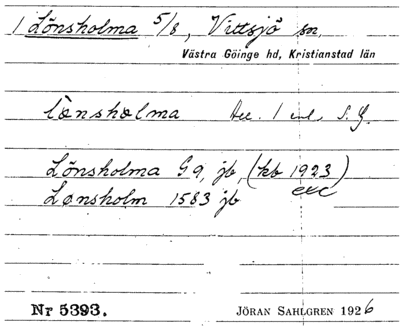 1 Lönsholma 5/8, Vittsjö sn,
Västra Göinge hd, Kristianstad län
lönshælma Acc. 1 enl. S. G.
Lönsholma G 9, jb, (kb 1923)
exc
Lønsholm 1583 jb
Nr 5393.
JÖRAN SAHLGREN 1926